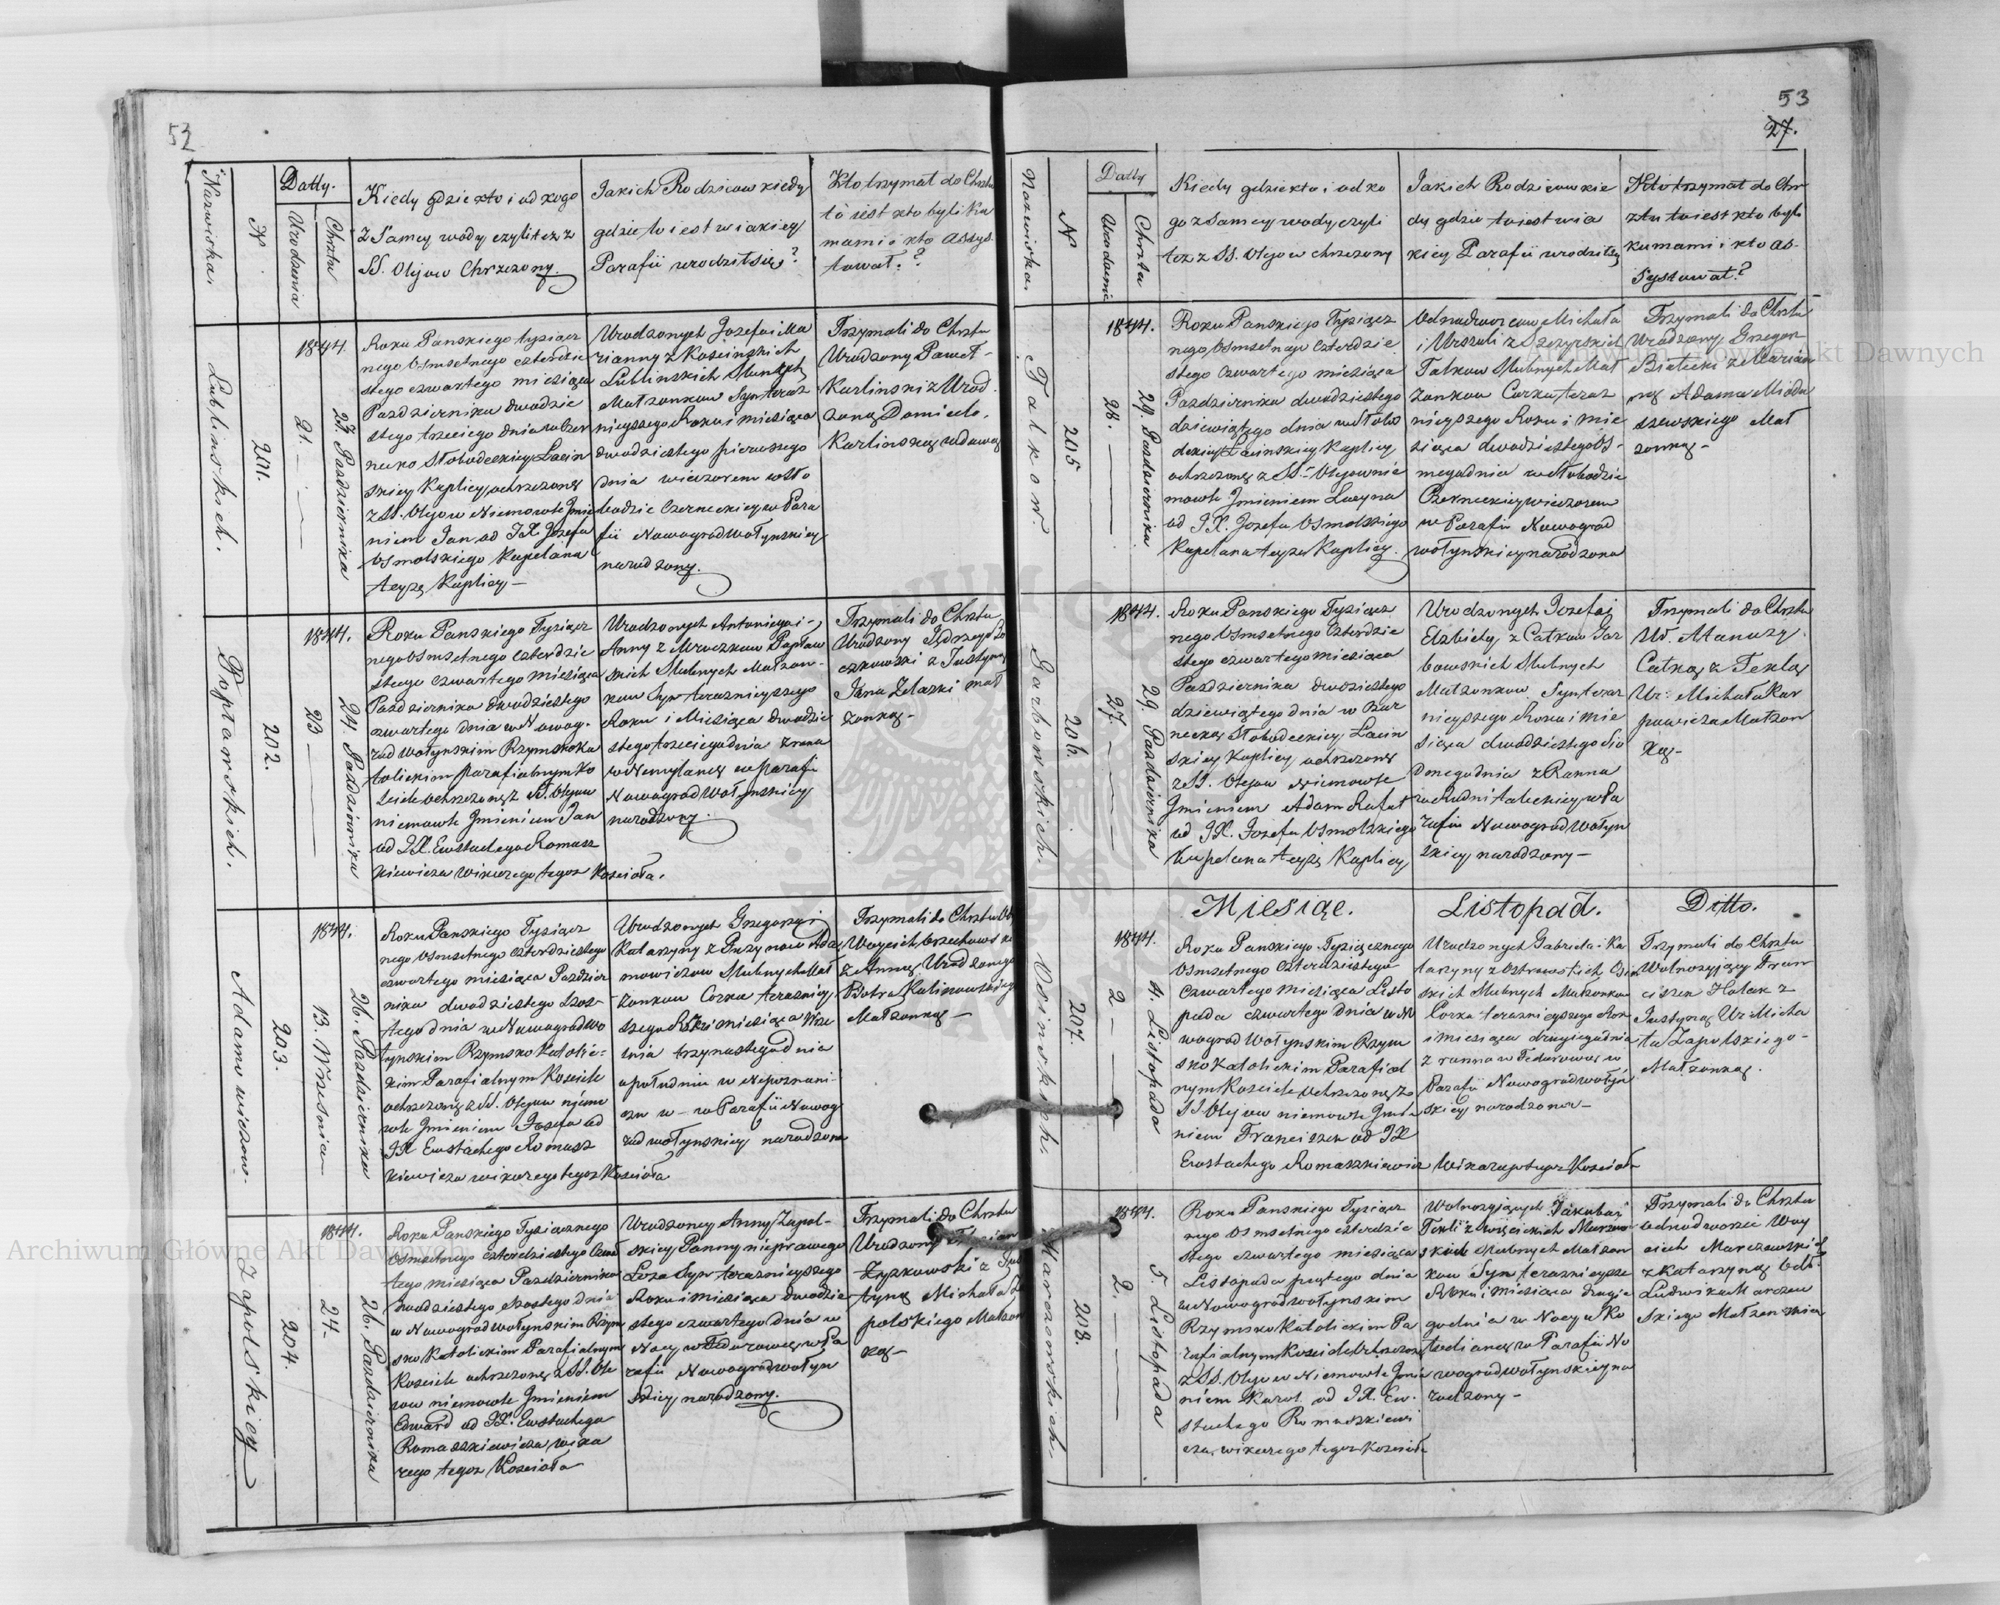 53
Nazwiska.
N.
Datty.
Urodzenia
Chrztu
Kiedy gdzie kto i od kogo
z Samey wody czyli tez z
SS. Olejow Chrzczony.
Jakich Rodzicow kiedy
gdzie to iest w iakiey
Parafii urodził się?
Kto trzymał do Chrztu
to iest kto byli Ku
mami i kto assys
tował?
Lublinskich.
201.
1844.
21.
23. Pazdziernika
Roku Panskiego tysiącz
nego Osmsetnego czterdzie
stego czwartego miesiąca
Pazdziernika dwudzie
stego trzeciego dnia w Czer
necko Słobodeckiey Lacin
skiey Kaplicy, ochrzczony
z SS. Olejow Niemowle Jmie
niem Jan od JX. Jozefa
Osmolskiego Kapelana
teyze Kaplicy
Urodzonych Jozefa i Ma
ryanny z Koscinskich
Lublinskich Slubnych
Małzonkow Syn teraz
nieyszego Roku i miesiąca
dwudziestego pierwszego
dnia wieczorem w Sło
bodzie Czerneckiey w Para
fii Nowogradwołynskiey
narodzony.
Trzymali do Chrztu
Urodzony Paweł
Karlinski z Urod
zoną Domicelą
Karlinską wdową
Popławskich.
202.
1844.
23
24. Pazdziernika
Roku Panskiego Tysiącz
nego Osmsetnego czterdzie
stego czwartego miesiąca
Pazdziernika dwudziestego
czwartego dnia w Nowog
rad wołynskim Rzymsko Ka
tolickim parafialnym Ko
sciele ochrzczony z SS. Olejow
niemowle Jmieniem Jan
od JX. Eustachego Romasz
kiewicza Wikarego tegoz Koscioła.
Urodzonych Antoniego i
Anny z Mroczkow Popław
skich Slubnych Małzon
kow Syn teraznieyszego
Roku i Miesiąca dwudzie
stego trzeciego dnia z rana
w Niemylancy w parafii
Nowogradwołynskiey
narodzony.
Trzymali do Chrztu
Urodzony Jędrzey
czkowski z Justyną
Jana Zelazki mał
zonką
Adamowiczow
203.
1844.
13. Wrzesnia
26. Pazdziernika
Roku Panskiego Tysiącz
nego Osmsetnego czterdziestego
czwartego miesiąca Pazdzier
nika dwudziestego szos
tego dnia w Nowogradwo
łynskim Rzymsko Katolic
kim Parafialnym Kosciele
ochrzczona z SS. Olejow niemo
wle Jmieniem Jozefa od
JX Eustachego Romasz
kiewicza wikarego tegoz Kosciola
Urodzonych Grzegorza i
Katarzyny z Adamowiczow Slubnych Mał
zonkow Corka teraznie
szego Roku miesiąca Wrze
snia trzynastego dnia
o południu w Nepoznani
w Parafii Nowog
rad wołynskiey narodzona
Trzymali do Chrztu
Woyciech Orzechowski
z Anną Urodzonego
Piotra Kalinowskiego
Małzonką
Zapolskiey
204.
1844.
24.
26. Pazdziernika
Roku Panskiego Tysiącznego
Osmsetnego czterdziestego czwar
tego miesiąca Pazdziernika
dwudziestego szostego dnia
w Nowogradwołynskim Rzym
sko Katolickim Parafialnym
Kosciele ochrzczony z SS. Ole
jow niemowle Jmieniem
Edward od JX. Eustachego
Romaszkiewicza, wika
rego tegoz Kosciola
Urodzoney Anny Zapol
skiey Panny nieprawego
Loza Syn teraznieyszego
Roku i miesiąca dwudzie
stego czwartego dnia w
Nocy, w Fedorowcy, w Pa
rafii Nowogradwołyn
skiey narodzony.
Trzymali do Chrztu
Urodzony
Zyzkowski z
Michała Za
polskiego Małzon
ką
53
27.
Nazwiska.
N
Datty
Urodzenia
Chrztu
Kiedy gdzie kto i od ko
go z Samey wody czyli
tez z SS. Olejow chrzczony
Jakich Rodzicow kie
dy gdzie to iest w ia
kiey Parafii urodził się
Kto trzymał do Chr
ztu to iest kto byli
kumami i kto as
systował?
Tatkow.
205
1844.
28.
29. Pazdziernika
Roku Panskiego Tysiącz
nego Osmsetnego czterdzie
stego czwartego miesiąca
Pazdziernika dwudziestego
dziewiątego dnia w Słobo
deckiey Lacinskiey Kaplicy
ochrzczona z SS. Olejow nie
mowle Jmieniem Lucyna
od JX. Jozefa Osmolskiego
Kapelana teyze Kaplicy.
Odnodworcow Michała
i Urszuli z Szczyrskich
Tatkow Slubnych Mał
zonkow Corka teraz
nieyszego Roku i mie
siąca dwudziestego os
mego dnia w Słobodzie
Czerneckiey wieczorem
w Parafii Nowograd
wołynskiey narodzona
Trzymali do Chrztu
Urodzony Grzegorz
Bielecki z Maryan
ną Adama Mioda
szewskiego Mał
zonką
Garbowskich.
206.
1844.
27.
29. Pazdziernika
Roku Panskiego Tysiącz
nego Osmsetnego czterdzie
stego czwartego miesiąca
Pazdziernika dwudziestego
dziewiątego dnia w Czar
necko Słobodeckiey Lacin
skiey Kaplicy ochrzczony
z SS. Olejow niemowle
Jmieniem Adam Rafał
od JX. Jozefa Osmolskiego
Kapelana teyze Kaplicy
Urodzonych Jozefa i
Elzbiety z Całkow Gar
bowskich Slubnych
Małzonkow Syn teraz
nieyszego Roku i mie
siąca dwudziestego sio
dmego dnia z Ranna
w Rudni Taleckiey w Pa
rafii Nowogradwołyn
skiey narodzony
Trzymali do Chrztu
Ur. Manuzy
Całką z Teklą
Ur: Michała Kar
powicza Małzon
ką
Miesiąc.
Listopad.
Ditto.
Osinskich.
207.
1844.
2
4. Listopada
Roku Panskiego Tysiącznego
Osmsetnego czterdziestego
czwartego miesiąca Listo
pada czwartego dnia w No
wogradWołynskim Rzym
sko Katolickim Parafial
nym Kosciele ochrzczony z
SS Olejow niemowle Jmie
niem Franciszek od JX
Eustachego Romaszkiewicza Wikarego tegoz Kosciola
Urodzonych Gabriela i Ka
tarzyny z Ostrowskich Osin
skich Slubnych Małzonkow
Corka teraznieyszego Rok
i miesiąca drugiego dnia
z ranna w Fedorowcy w
Parafii Nowogradwołyn
skiey narodzona
Trzymali do Chrztu
Wolnozyjący Fran
ciszek Hołak z
Justyną Ur Micha
ła Zapolskiego
Małzonką.
Marczewskich
208.
1844.
2.
5. Listopada
Roku Panskiego Tysiącz
nego Osmsetnego czterdzie
stego czwartego miesiąca
Listopada piątego dnia
w Nowogradwołynskim
Rzymsko Katolickim Pa
rafialnym Kosciele Ochrzczony
z SS. Olejow Niemowle Jmie
niem Karol od JX. Eu
stachego Romaszkiewi
cza, wikarego tegoz Kosciola
Wolnozyjących Jakuba i
Tekli z Swięcickich Marczew
skich Slubnych Małzon
kow Syn teraznieysze
Roku i miesiąca drugie
go dnia w Nocy w Ko
telance w Parafii No
wogradwołynskiey na
rodzony
Trzymali do Chrztu
odnodworzec Woy
ciech Marczewski
z Katarzyną
Ludwika Marczew
skiego Małzonką
Archiwum Główne Akt Dawnych
Archiwum Główne Akt Dawnych